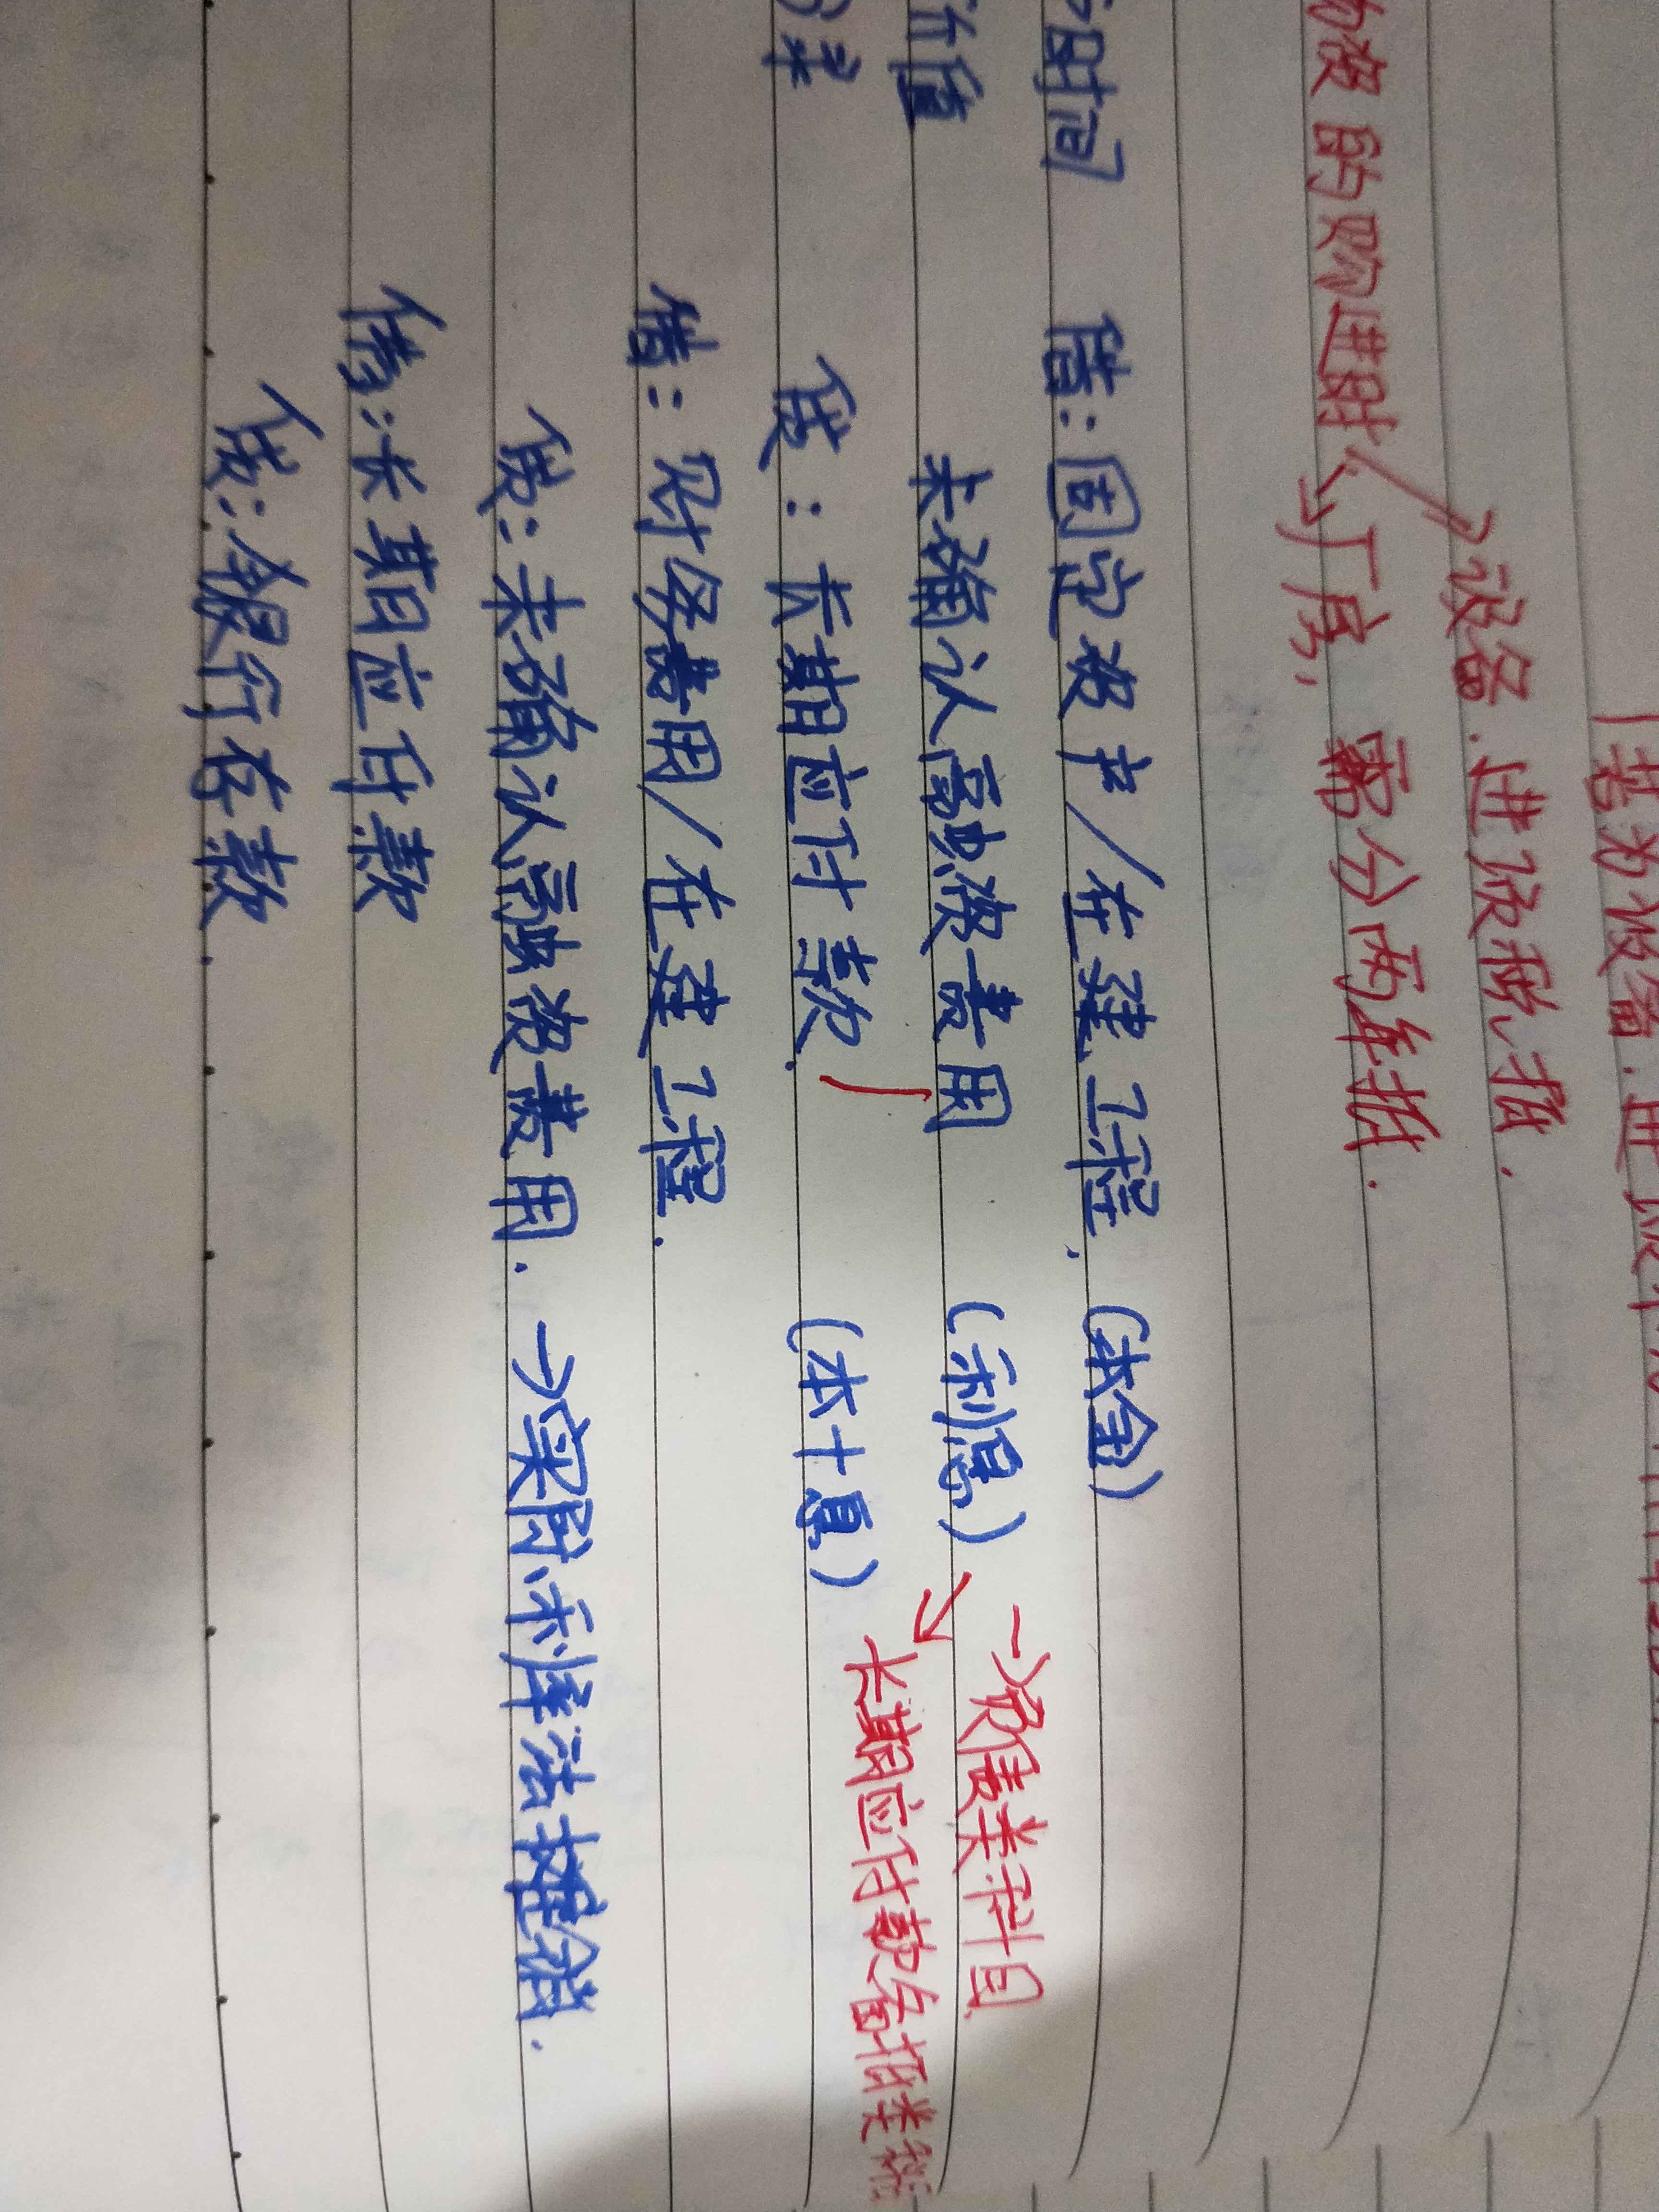 若为设备.进项
→设备.进项税抵.
的购进时
厂房,需分两年抵.
时间 借:固定资产/在建工程.(本金)
价值 未确认融资费用 (利息) →负债类科目
贷:长期应付款. (本+息) 长期应付款备抵类
借:财务费用/在建工程.
贷:未确认融资费用.→实际利率法摊销.
借:长期应付款
贷:银行存款.